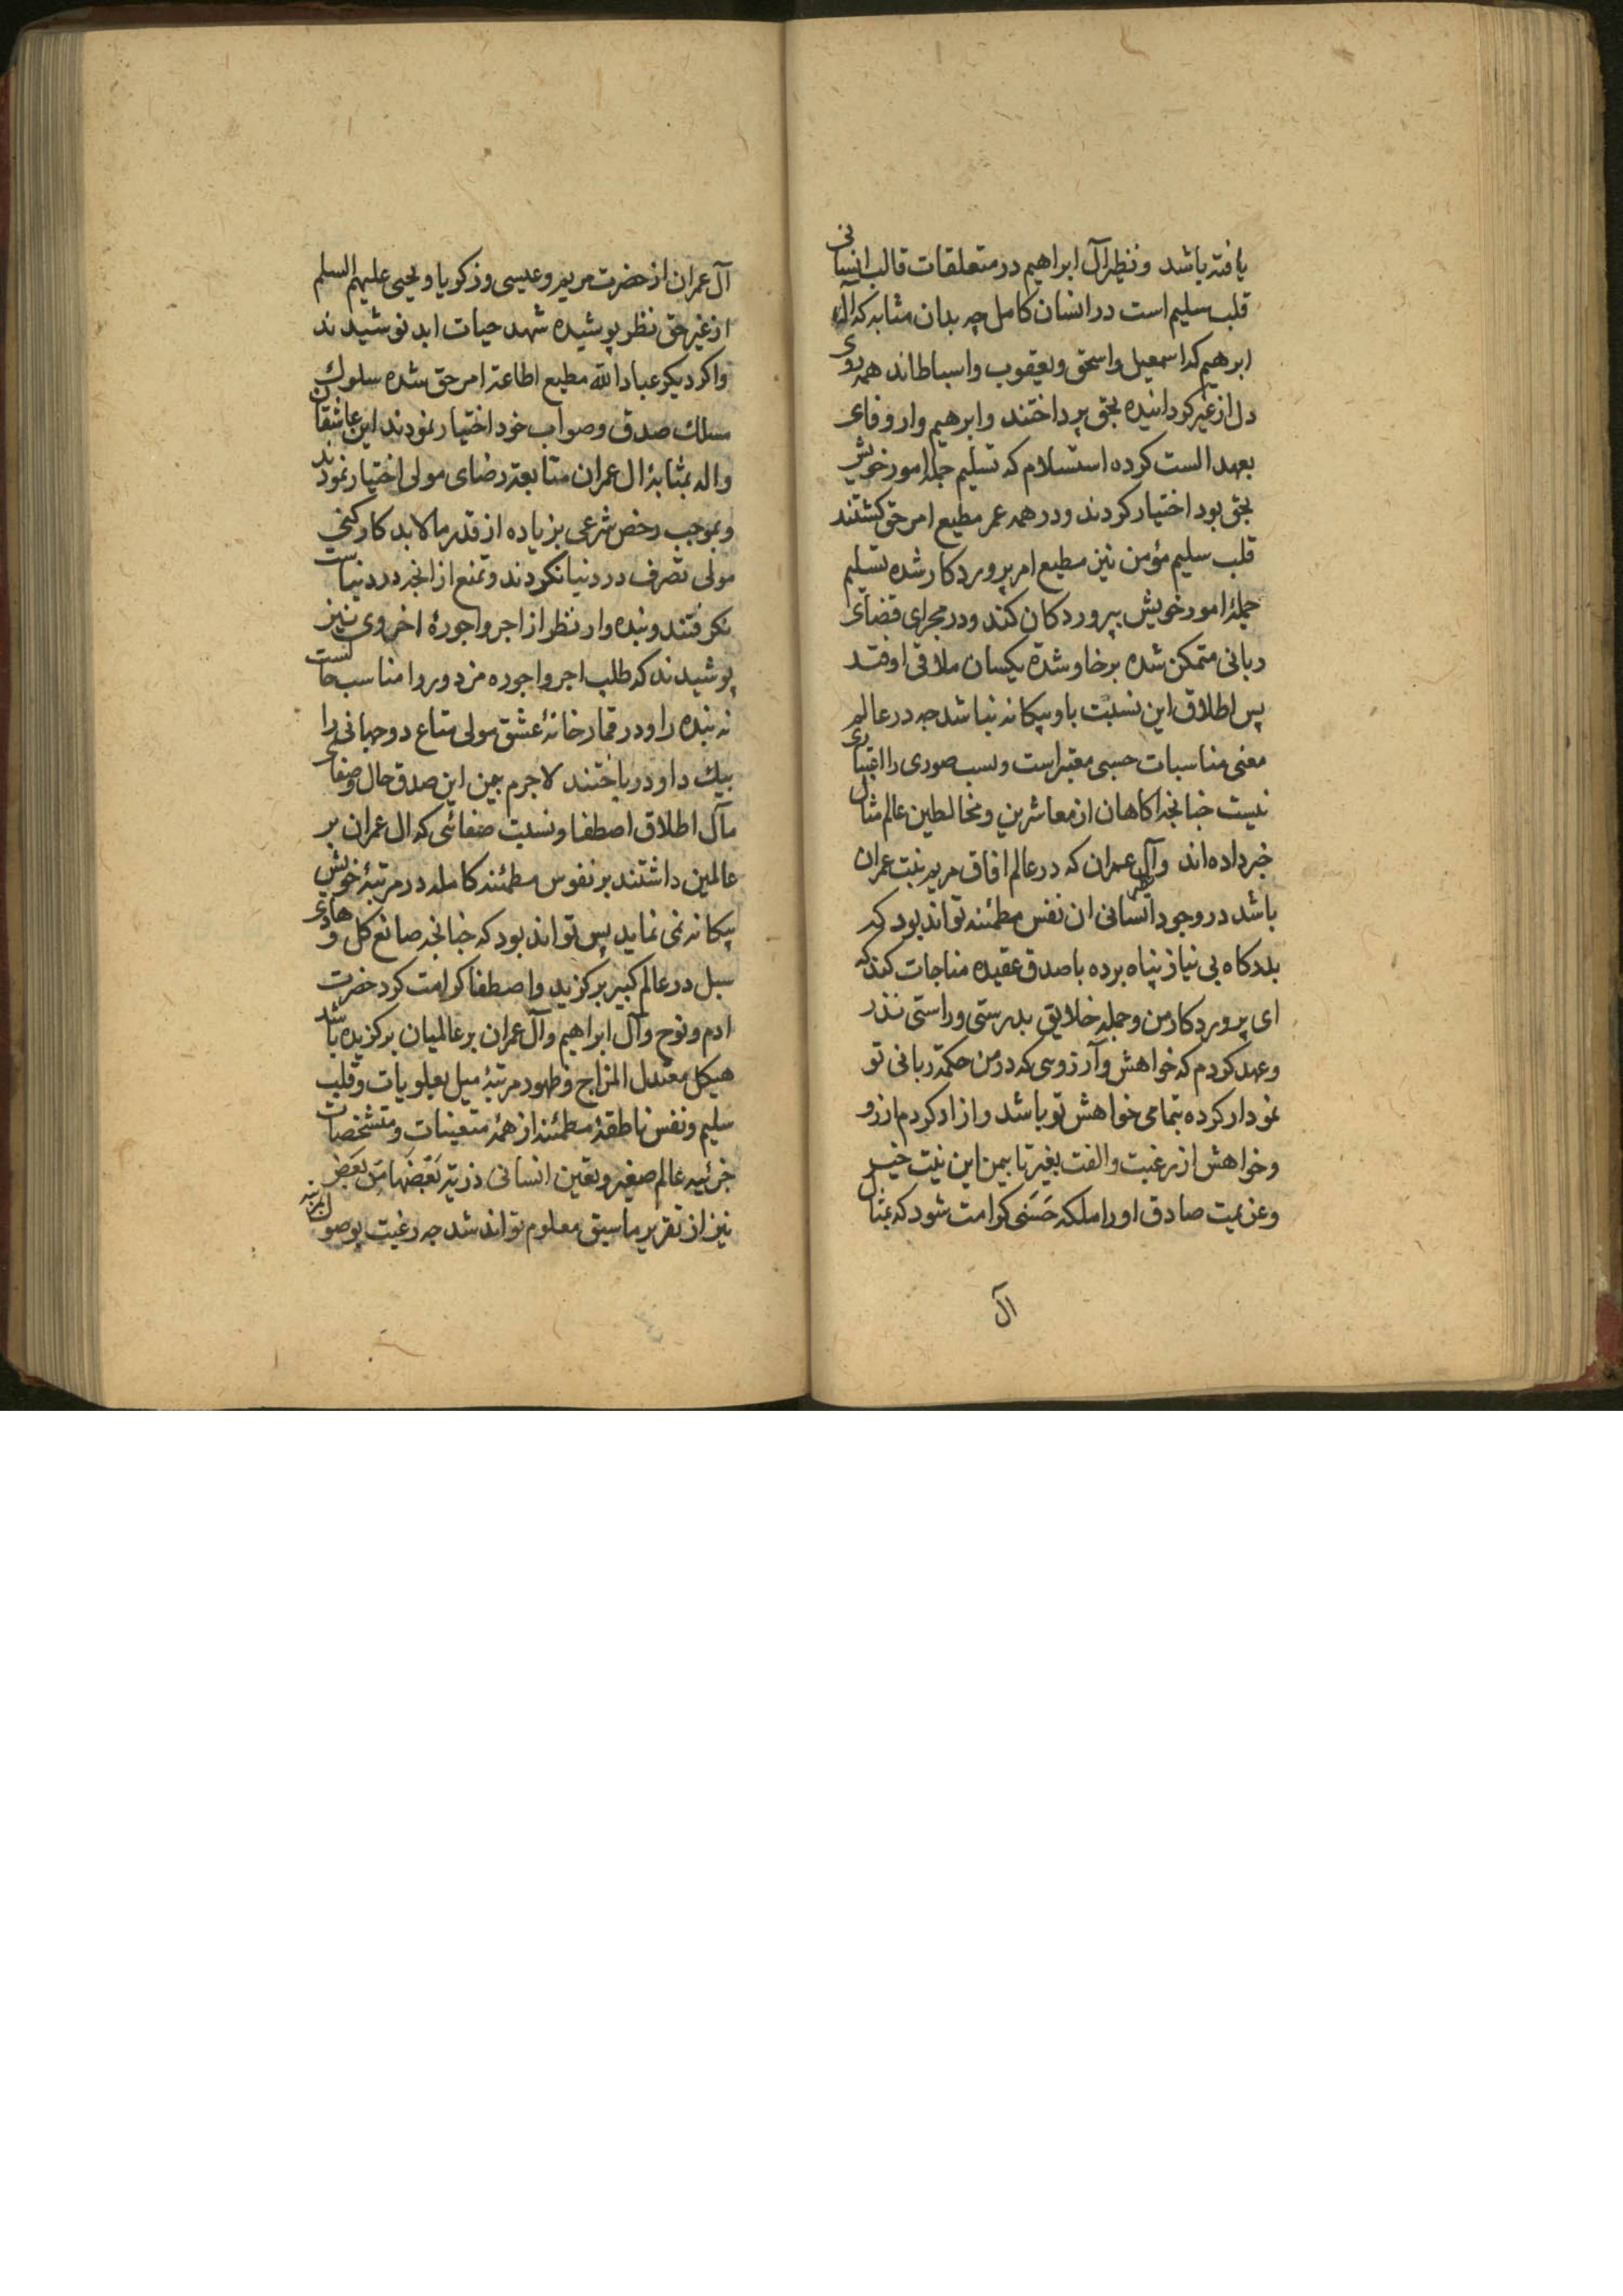 یافته باشد ونظیر آل ابراهیم در متعلقات قالب انسانی
قلب سلیم است در انسان کامل چه بدان مثابه که آل
ابرهیم که اسمعیل واسحق ویعقوب واسباط اند همه روی
دل از غیر کردانیده بحق پرداختند وابرهیم وار وفای
بعهد الست کرده استسلام که تسلیم جمله امور خویش
بحق بود اختیار کردند ودر همه عمر مطیع امر حق کشتند
قلب سلیم مؤمن نیز مطیع امر پروردکار شده تسلیم
جملۀ امور خویش بپروردکان کند ودر مجرای قضای
ربانی متمکن شده برخا وشدّة یکسان ملاقی اوفتد
پس اطلاق این نسبت باو بیکانه نباشد چه در عالم
معنی مناسبات حسبی معتبر است ونسب صوری را اعتباری
نیست چنانچه اکاهان از معاشرین ومخالطین عالم مثال
خبر داده اند وآل عمران که در عالم افاق مریم بنت عمران
باشد در وجود انسانی ان نفس مطمئنه تواند بود که
بدرکاه بی نیاز پناه برده با صدق عقیده مناجات کند که
ای پروردکار من وجمله خلایق بدرستی وراستی نذر
وعهد کردم که خواهش وآرزوسی که در من حکمة ربانی تو
نمودار کرده بتمامی خواهش تو باشد وازاد کردم ارزو
وخواهش از رغبت والفت بغیر تا بیمن این نیت خیر
وعزیمت صادق اورا ملکه حَسَنی کرامت شود که بمثال
آل
آل عمران از حضرت مریم وعیسی وزکریا ویحیی علیهم السلم
از غیر حق نظر پوشیده شهد حیات ابد نوشیدند
واکر دیکر عباد الله مطیع اطاعة امر حق شده سلوك
مسلك صدق وصواب خود اختیار نمودند این عاشقان
واله بمثابۀ ال عمران متابعة رضای مولی اختیار نمودند
وبموجب رخص شرعی بزیاده از قدر مالابد کارکنی
مولی تصرف در دنیا نکردند وتمتع از انچه در دنیاست
نکرفتند وبنده وار نظر از اجر واجورۀ اخروی نیز
پوشیدند که طلب اجر واجوره مزدور را مناسب حالست
نه بنده را ودر قمارخانۀ عشق مولی متاع دوجهانی را
بیك داو درباختند لاجرم بیمن این صدق حال وصفای
مآل اطلاق اصطفا ونسبت صفائی که ال عمران بر
عالمین داشتند بر نفوس مطمئنه کامله در مرتبۀ خویش
بیکانه نمی نماید پس تواند بود که چنانچه صانع کل وهادی
سبل در عالم کبیر برکزید واصطفا کرامت کرد حضرت
ادم ونوح وآل ابراهیم وآل عمران بر عالمیان برکزیده باشد
هیکل معتدل المزاج وظهور مرتبۀ میل بعلویات وقلب
سلیم ونفس ناطقۀ مطمئنه از همۀ متعینات ومتشخصات
جزئیه عالم صغیر وتعین انسانی ذریّة بَعْضُهَا مِن بَعض
نیز از تقریر ما سبق معلوم تواند شد چه رغبت بوصول بمرتبه